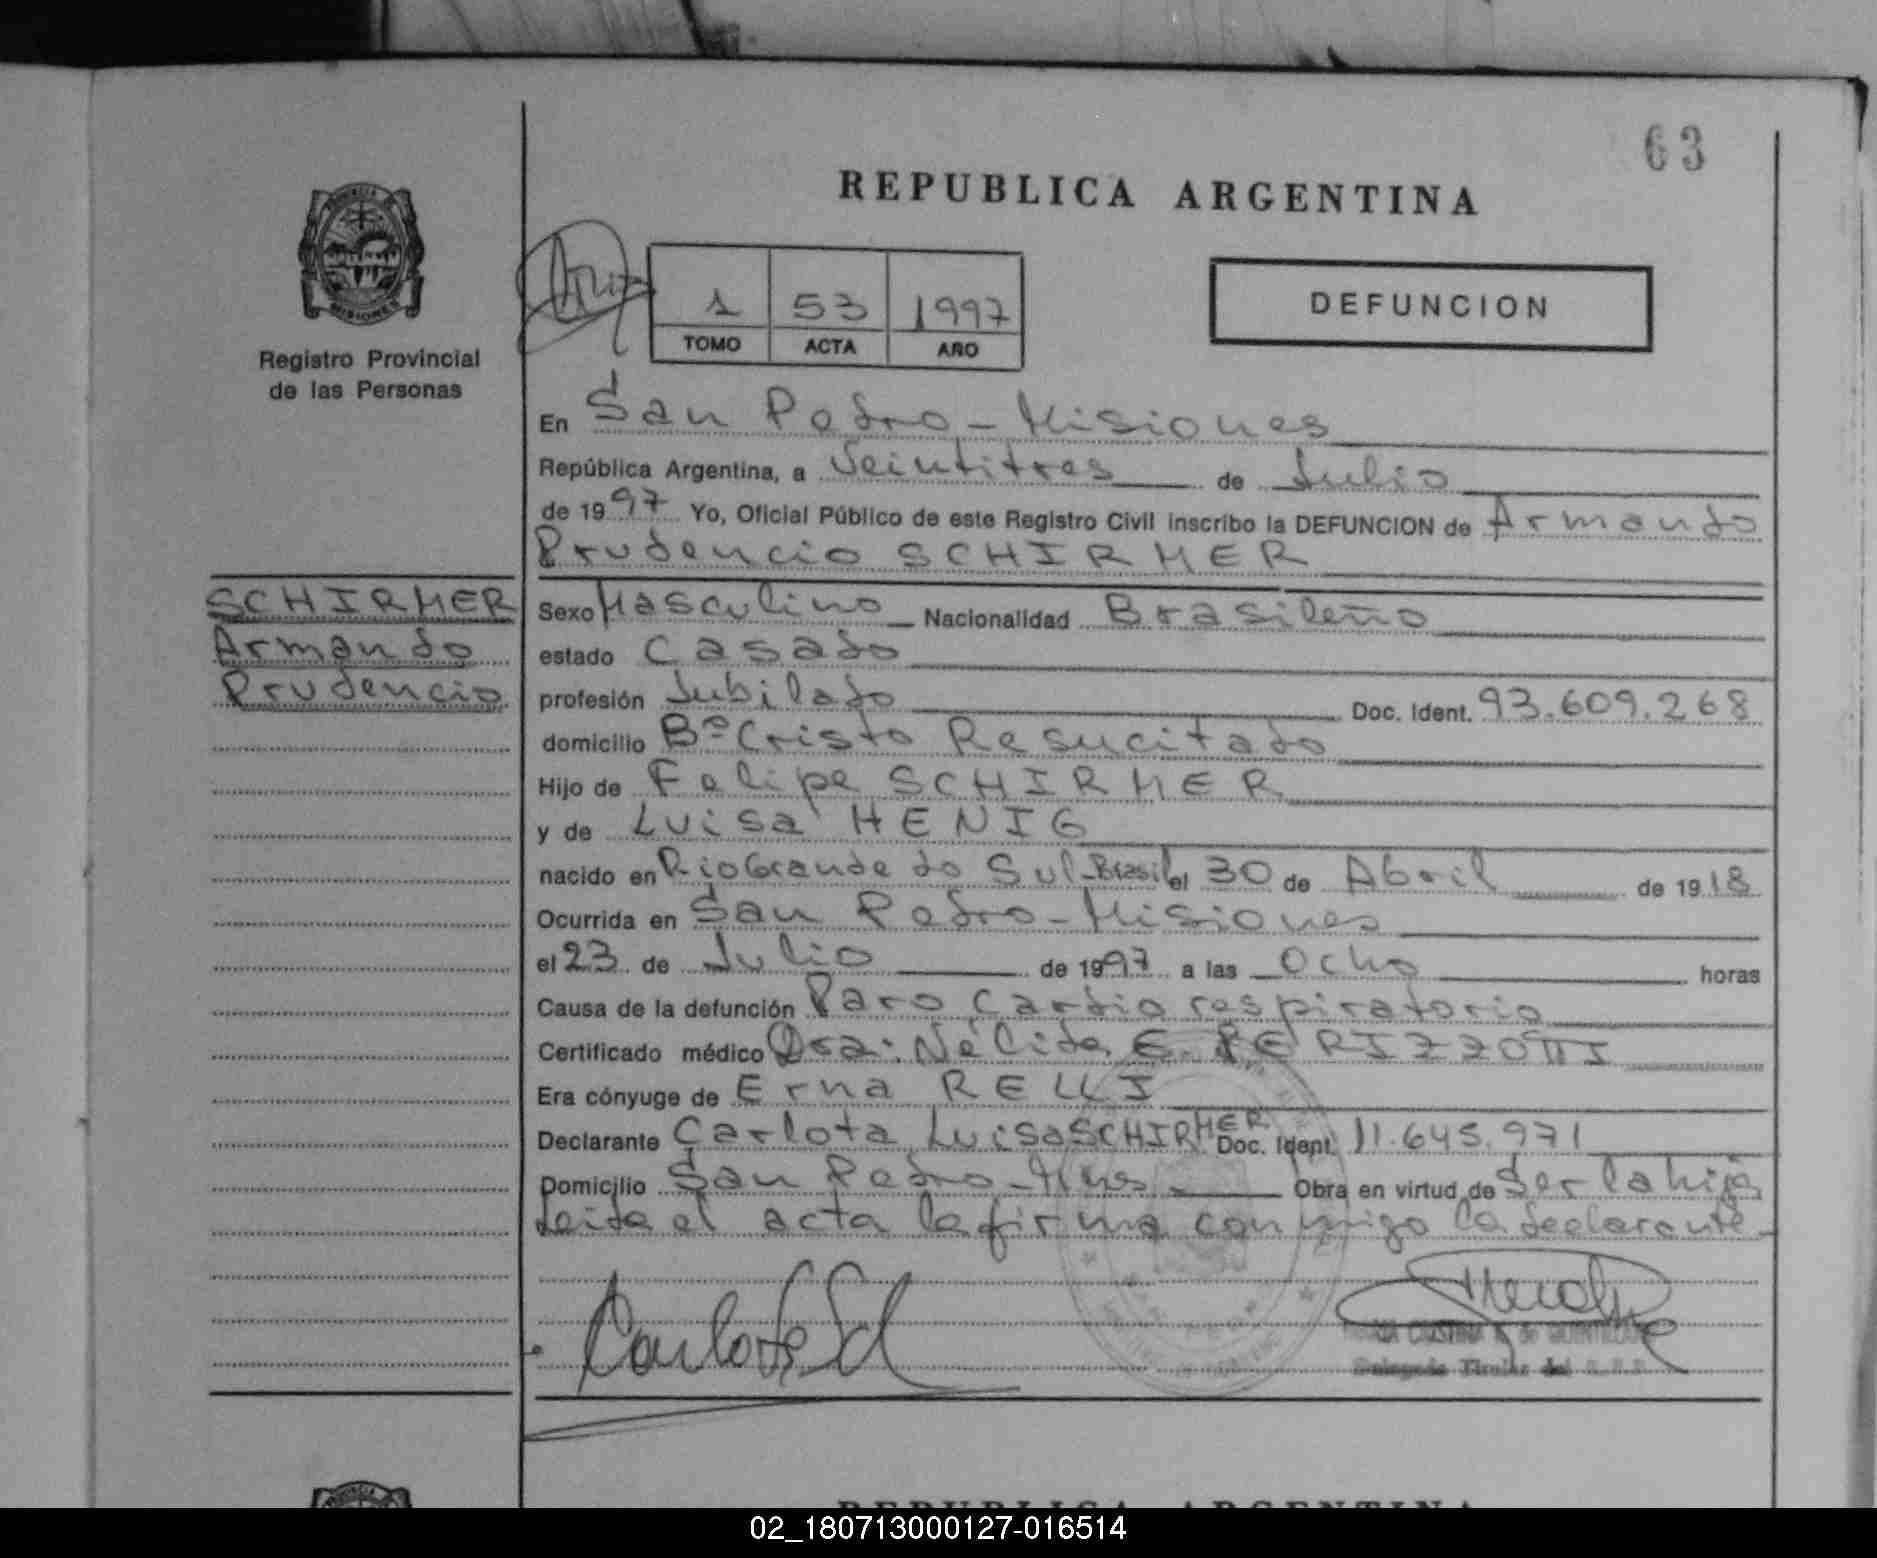 63
REPUBLICA ARGENTINA
PROVINCIA DE
MISIONES
Registro Provincial
de las Personas
1 53 1997
TOMO ACTA AÑO
DEFUNCION
En San Pedro - Misiones
República Argentina, a Veintitres de Julio
de 1997 Yo, Oficial Público de este Registro Civil inscribo la DEFUNCION de Armando
Prudencio SCHIRMER
SCHIRMER
Armando
Prudencio
Sexo Masculino Nacionalidad Brasileño
estado Casado
profesión Jubilado Doc. Ident. 93.609.268
domicilio Bº Cristo Resucitado
Hijo de Felipe SCHIRMER
y de Luisa HENIG
nacido en Rio Grande do Sul-Brasil el 30 de Abril de 1918
Ocurrida en San Pedro - Misiones
el 23 de Julio de 1997 a las Ocho horas
Causa de la defunción Paro Cardio respiratorio
Certificado médico Dra. Nélida E.
Era cónyuge de Erna
Declarante Carlota Luisa SCHIRMER Doc. Ident. 11.645.971
Domicilio San Pedro - Mnes Obra en virtud de Ser la hija
Leida el acta la firma conmigo la declarante
CRISTINA
Delegada Titular del
REPUBLICA ARGENTINA
02_180713000127-016514